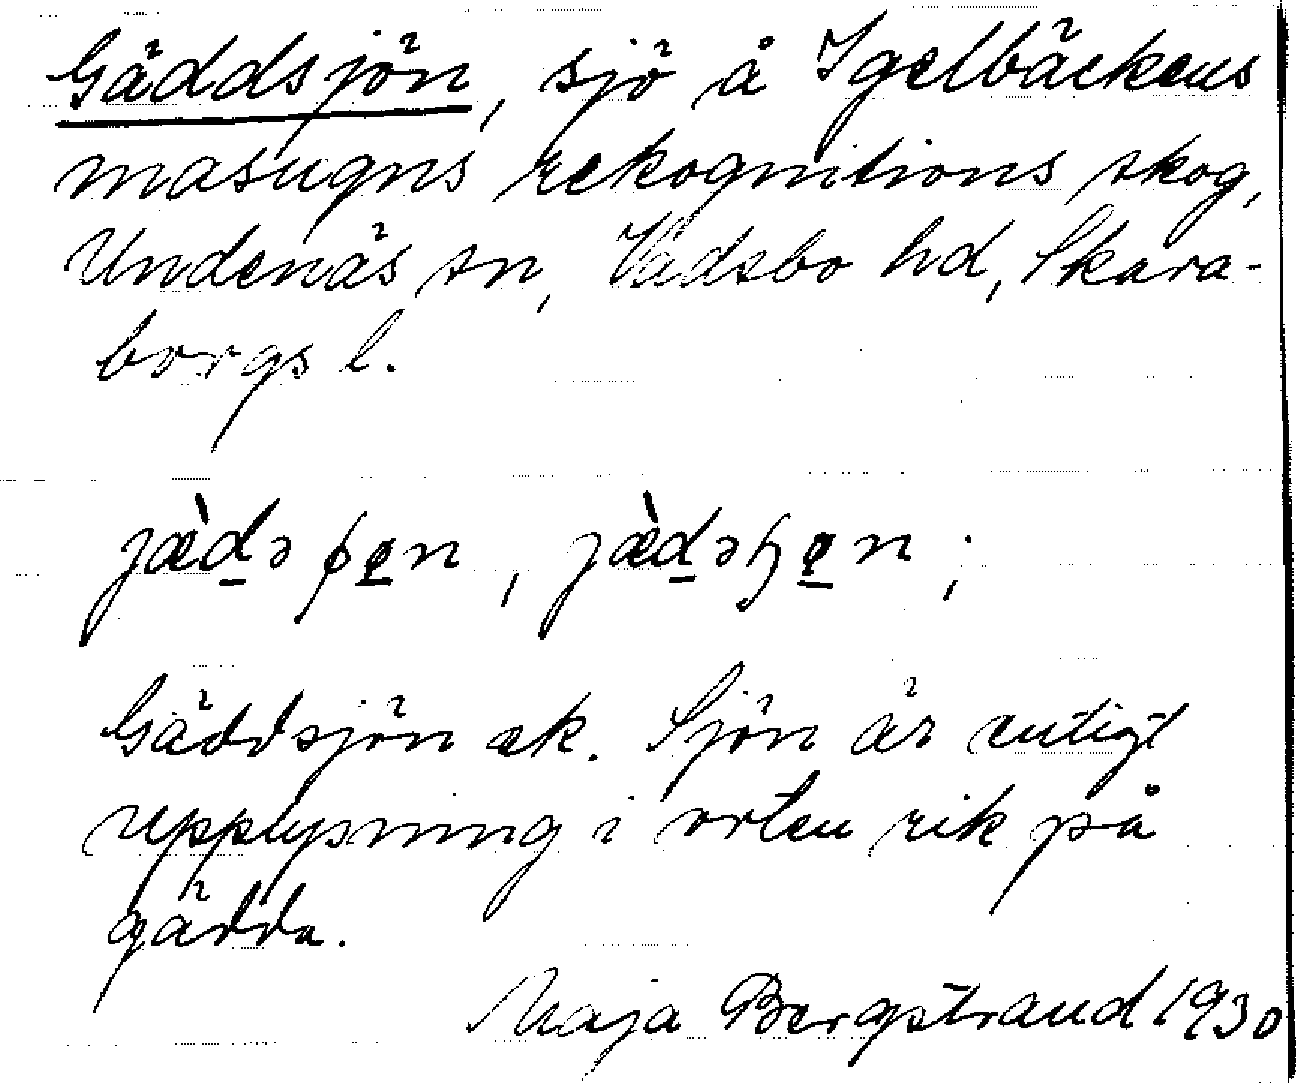 Gäddsjön, sjö å Igelbäckens
masugns rekognitions skog,
Undenäs sn, Vadsbo hd, Skara-
borgs l.
Gäddsjön ek. Sjön är enligt
upplysning i orten rik på
gädda.
Maja Bergstrand 1930